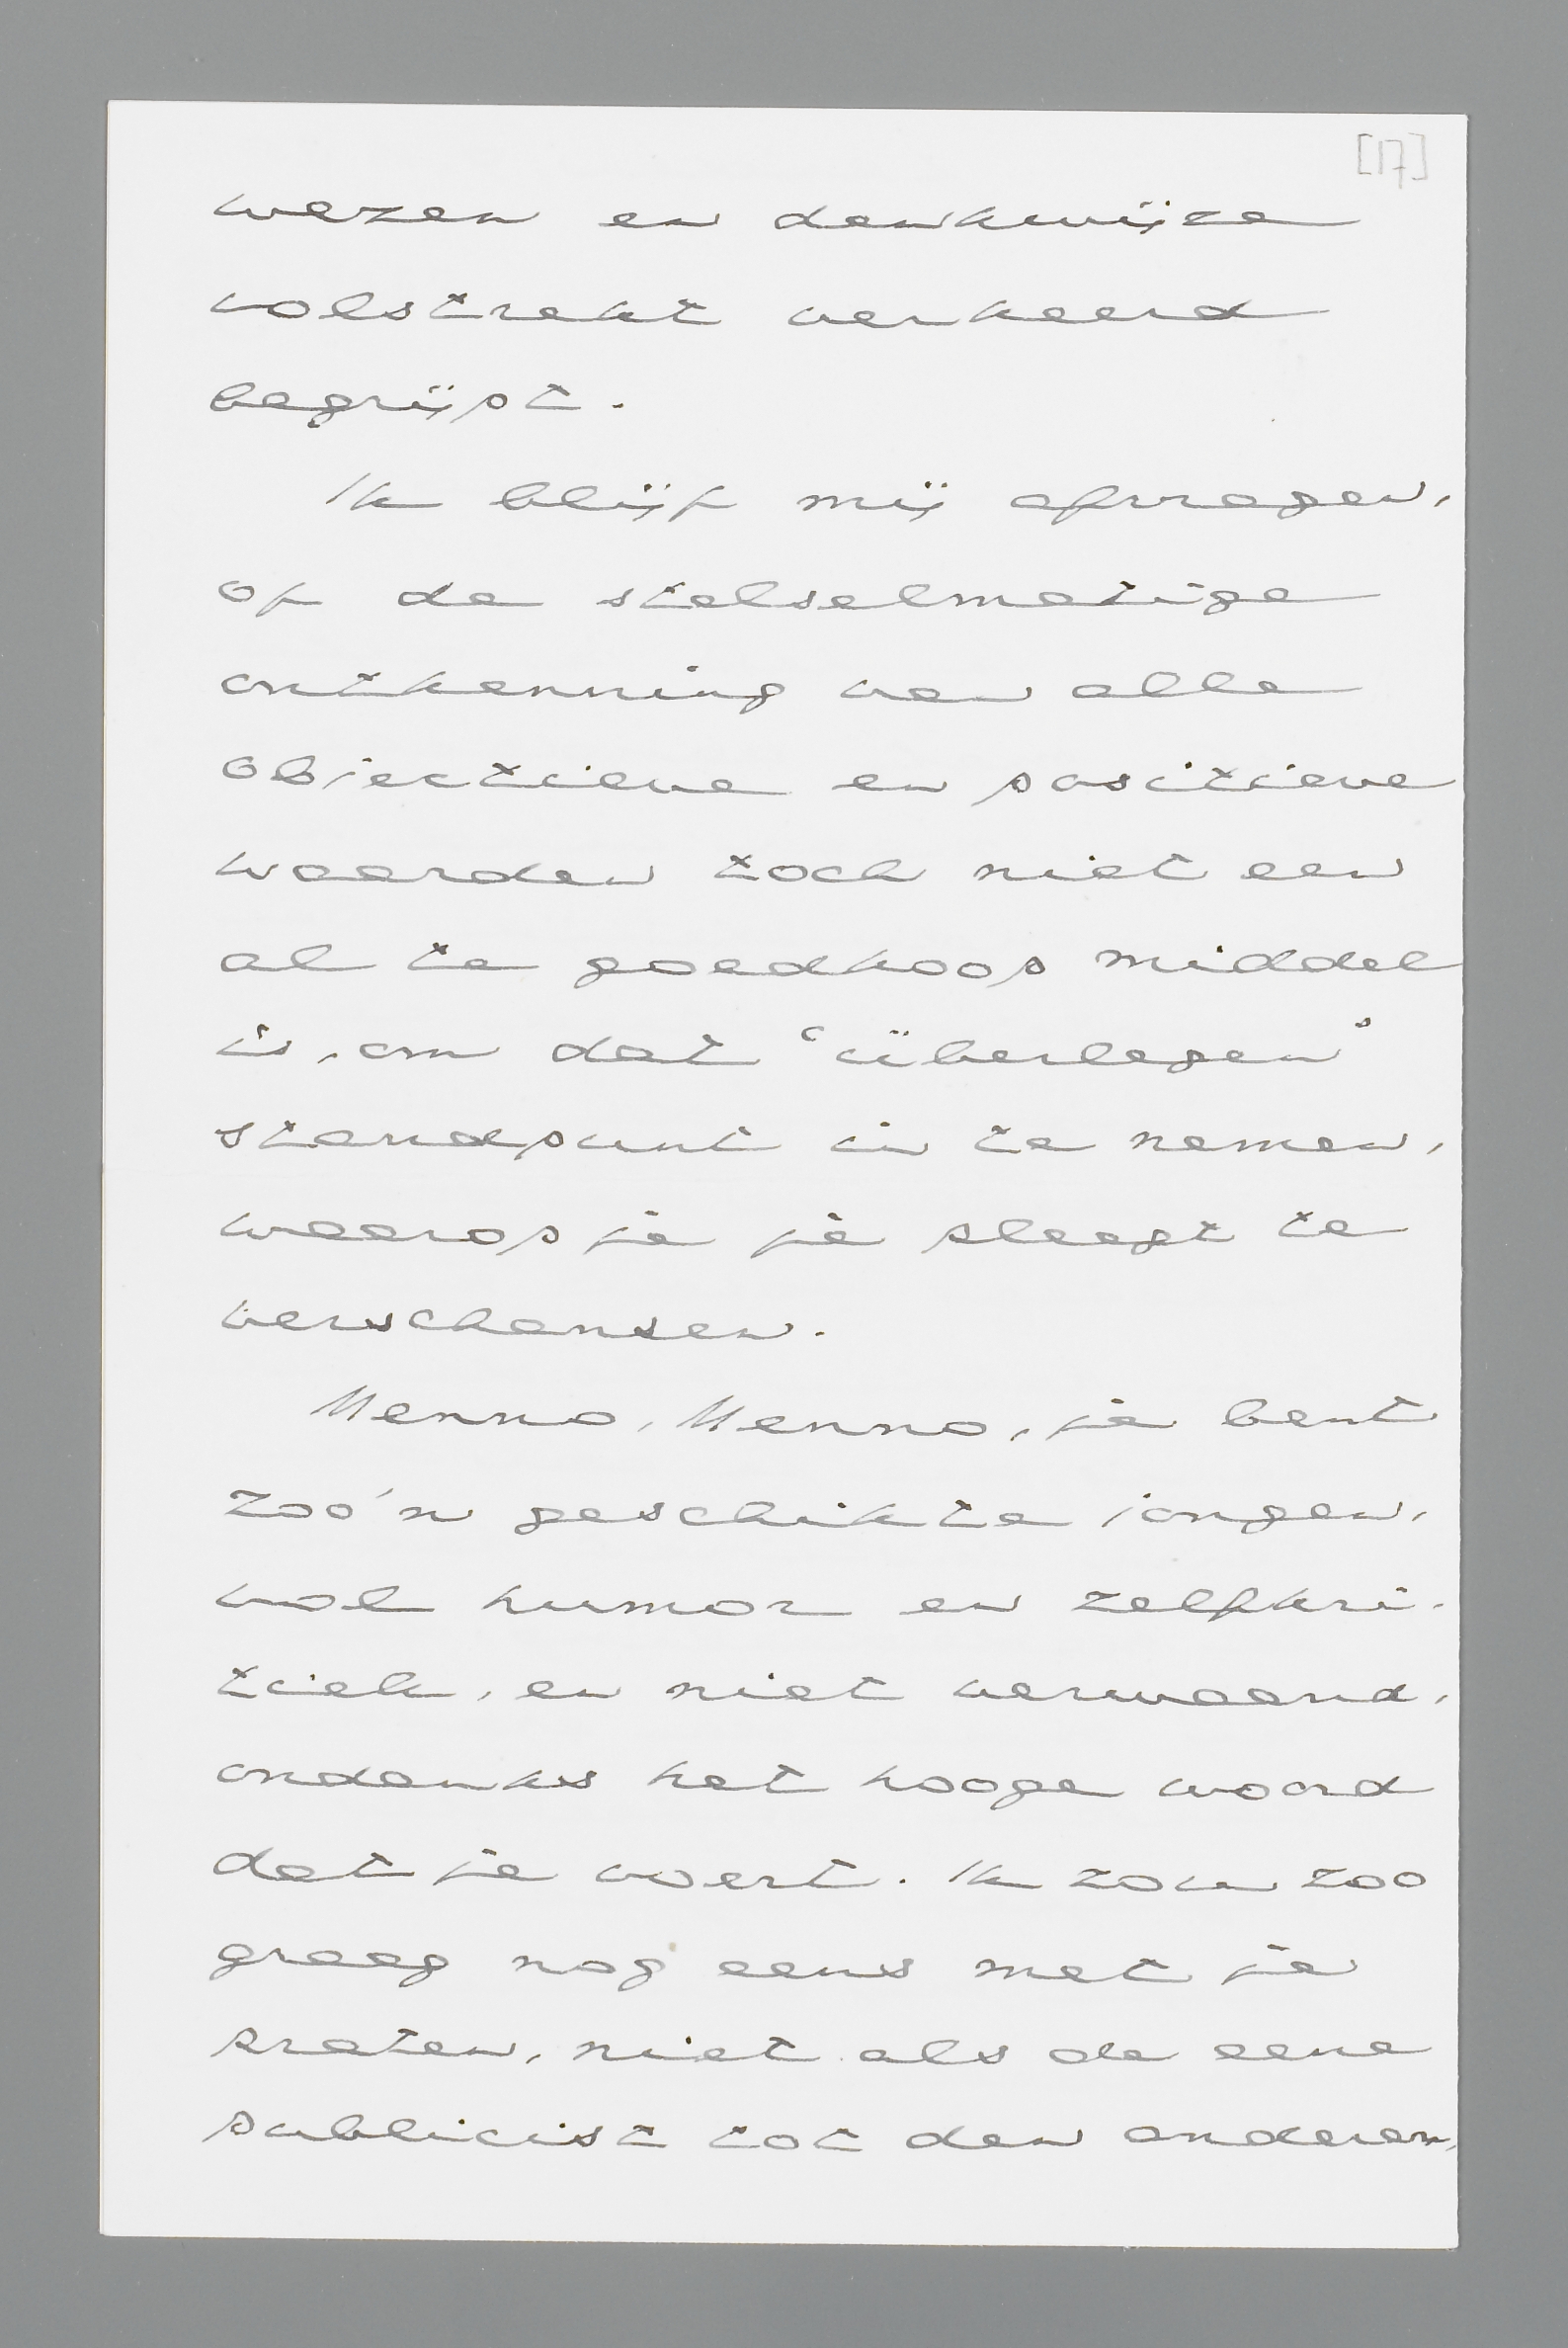 [17]
wezen en denkwijze
volstrekt verkeerd
begrijpt.
Ik blijf mij afvragen,
of de stelselmatige
ontkenning van alle
objectieve en positieve
waarden toch niet een
al te goedkoop middel
is, om dat "überlegen"
standpunt in te nemen,
waarop je je pleegt te
verschansen.
Menno, Menno, je bent
zoo'n geschikte jongen,
vol humor en zelfkri-
tiek, en niet verwaand,
ondanks het hooge woord
dat je voert. Ik zou zoo
graag nog eens met je
praten, niet als de eene
publicist tot den anderen,